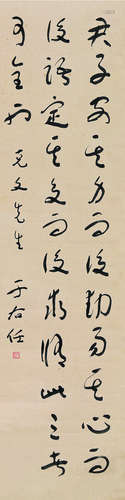 君子安其身而後動易其心而
後語定其交而後求脩此三者
故全也 克文先生 于右任